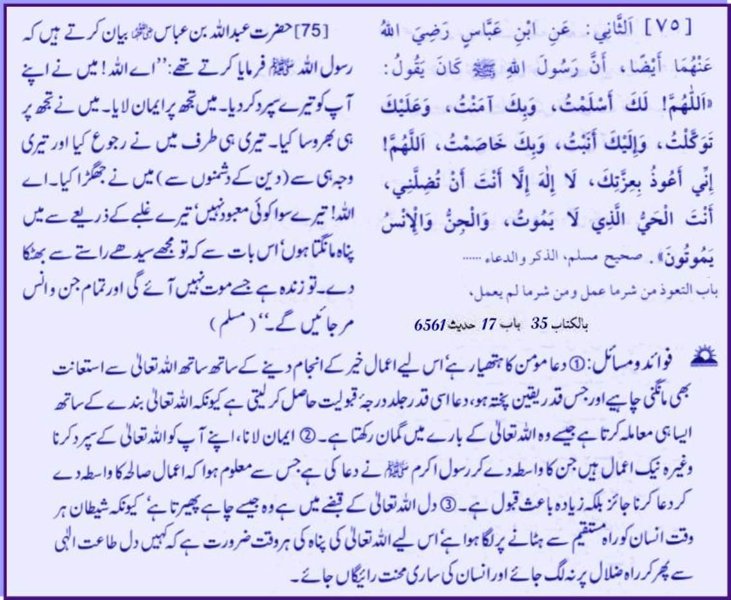 [٧٥] اَلثَّانِي: عَنِ ابْنِ عَبَّاسٍ رَضِيَ اللهُ
عَنْهُمَا أَيْضًا، أَنَّ رَسُولَ اللهِ ﷺ كَانَ يَقُولُ:
«اَللّٰهُمَّ! لَكَ أَسْلَمْتُ، وَبِكَ آمَنْتُ، وَعَلَيْكَ
تَوَكَّلْتُ، وَإِلَيْكَ أَنَبْتُ، وَبِكَ خَاصَمْتُ، اَللّٰهُمَّ!
إِنِّي أَعُوذُ بِعِزَّتِكَ، لَا إِلٰهَ إِلَّا أَنْتَ أَنْ تُضِلَّنِي،
أَنْتَ الْحَيُّ الَّذِي لَا يَمُوتُ، وَالْجِنُّ وَالْإِنْسُ
يَمُوتُونَ». صحيح مسلم، الذكر والدعاء ......
باب التعوذ من شرما عمل ومن شرما لم يعمل،
بالکتاب 35 باب 17 حدیث 6561
[75] حضرت عبداللہ بن عباس ؓ بیان کرتے ہیں کہ
رسول اللہ ﷺ فرمایا کرتے تھے: ’’اے اللہ! میں نے اپنے
آپ کو تیرے سپرد کر دیا۔ میں تجھ پر ایمان لایا۔ میں نے تجھ پر
ہی بھروسا کیا۔ تیری ہی طرف میں نے رجوع کیا اور تیری
وجہ ہی سے (دین کے دشمنوں سے) میں نے جھگڑا کیا۔ اے
اللہ! تیرے سوا کوئی معبود نہیں‘ تیرے غلبے کے ذریعے سے میں
پناہ مانگتا ہوں‘ اس بات سے کہ تو مجھے سیدھے راستے سے بھٹکا
دے۔ تو زندہ ہے جسے موت نہیں آئے گی اور تمام جن و انس
مر جائیں گے۔‘‘ (مسلم)
فوائد و مسائل: ① دعا مومن کا ہتھیار ہے‘ اس لیے اعمال خیر کے انجام دینے کے ساتھ ساتھ اللہ تعالیٰ سے استعانت
بھی مانگنی چاہیے اور جس قدر یقین پختہ ہو، دعا اسی قدر جلد درجۂ قبولیت حاصل کر لیتی ہے کیونکہ اللہ تعالیٰ بندے کے ساتھ
ایسا ہی معاملہ کرتا ہے جیسے وہ اللہ تعالیٰ کے بارے میں گمان رکھتا ہے۔ ② ایمان لانا، اپنے آپ کو اللہ تعالیٰ کے سپرد کرنا
وغیرہ نیک اعمال ہیں جن کا واسطہ دے کر رسول اکرم ﷺ نے دعا کی ہے جس سے معلوم ہوا کہ اعمال صالحہ کا واسطہ دے
کر دعا کرنا جائز بلکہ زیادہ باعث قبول ہے۔ ③ دل اللہ تعالیٰ کے قبضے میں ہے وہ جیسے چاہے پھیرتا ہے‘ کیونکہ شیطان ہر
وقت انسان کو راہ مستقیم سے ہٹانے پر لگا ہوا ہے‘ اس لیے اللہ تعالیٰ کی پناہ کی ہر وقت ضرورت ہے کہ کہیں دل طاعت الٰہی
سے پھر کر راہ ضلال پر نہ لگ جائے اور انسان کی ساری محنت رائیگاں جائے۔